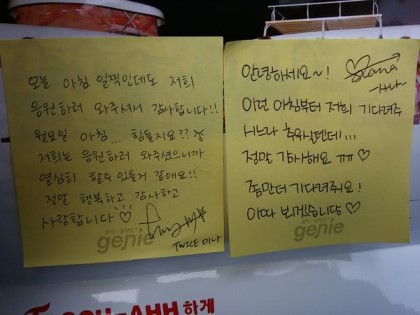 오늘 아침 일찍인데도 저희
응원하러 와주셔서 감사합니다!!
월요일 아침.... 힘들지요??
저희는 응원하러 와주셨으니까
열심히 할수 있을거 같애요!!
정말 행복하고 감사하고
사랑합니다♡
genie
TWICE 미나
안녕하세요~! ♡Sana
사나
이런 아침부터 저희 기다려주
시느라 추우실텐데...
정말 감사해요 ㅠㅠ♡
좀만더 기다려주요!
이따 보겠습니다♡
genie
OOH-AHH 하게